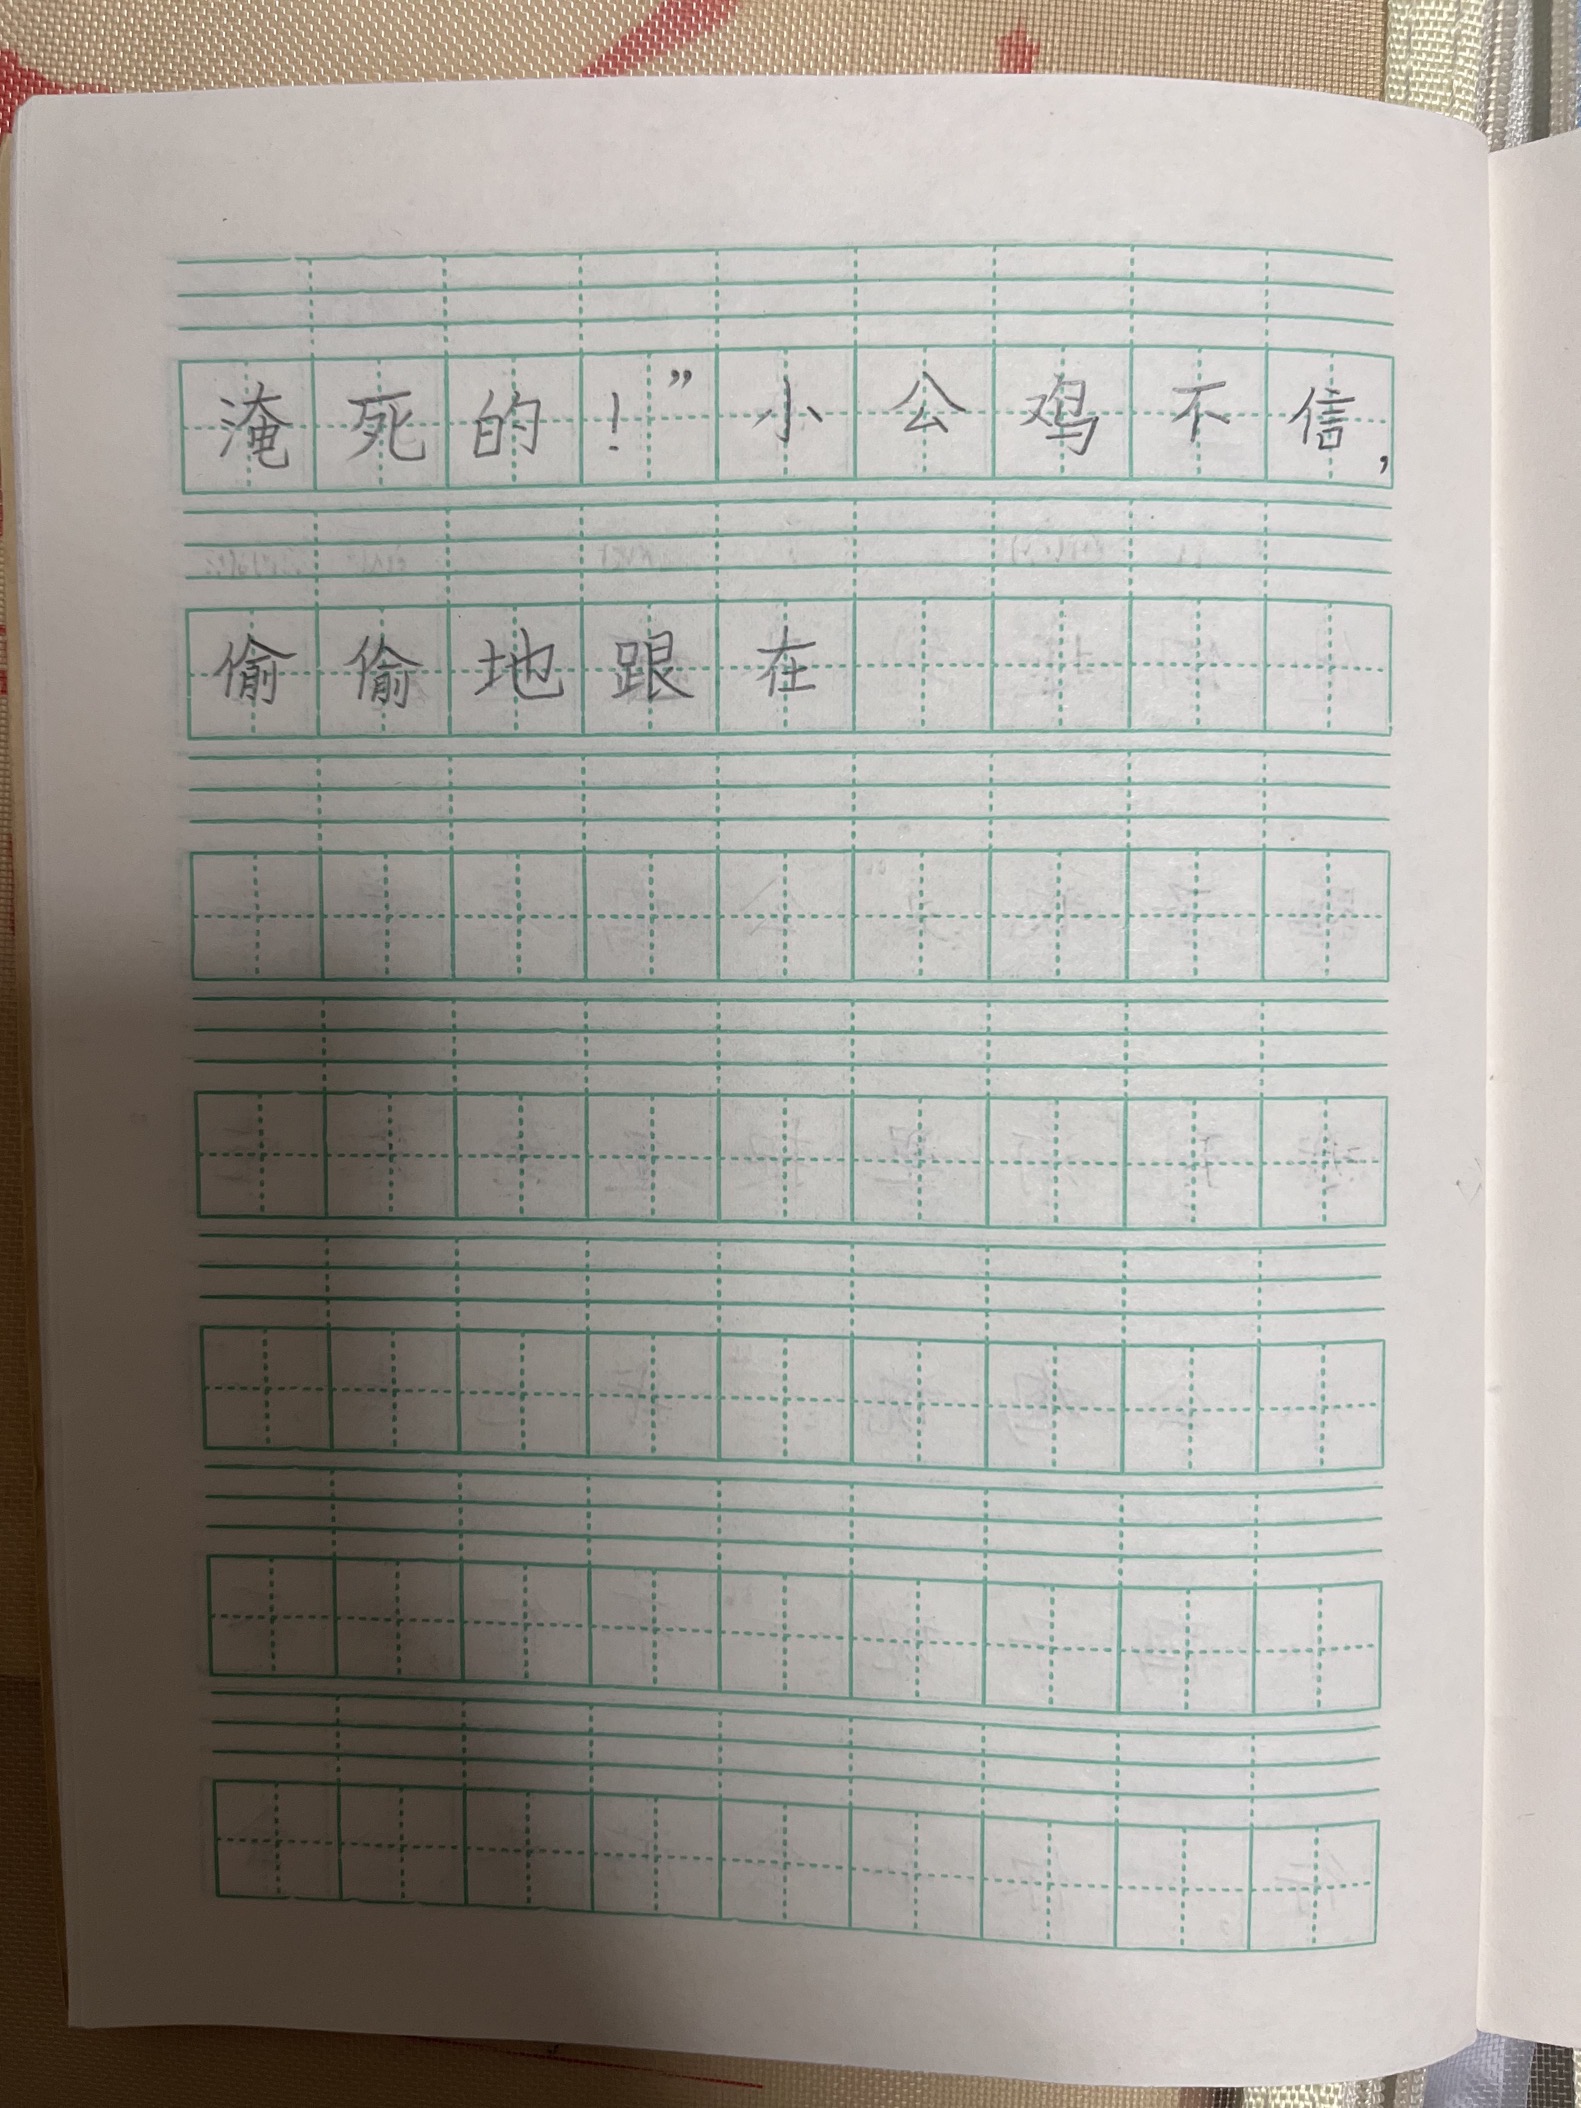 淹死的！”小公鸡不信，
偷偷地跟在